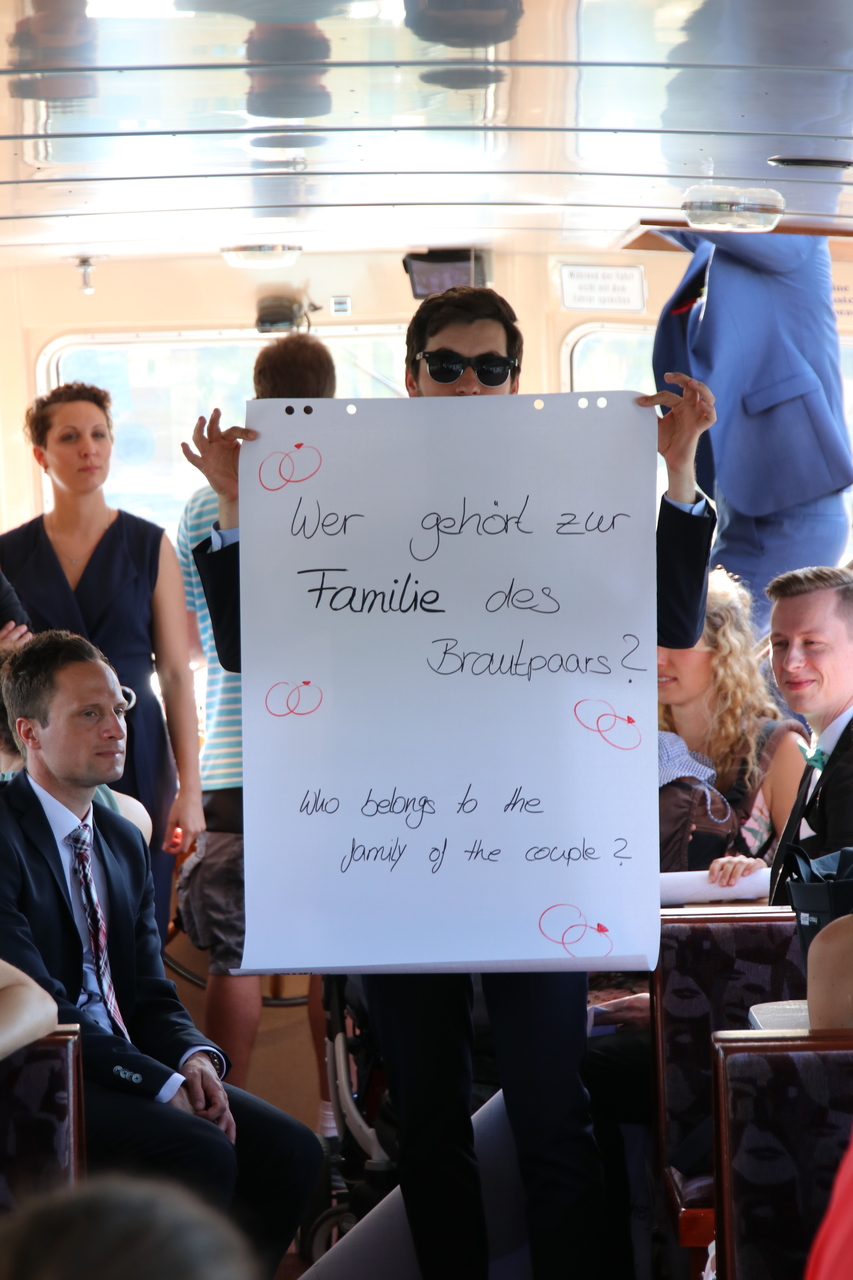 Während der Fahrt
nicht mit dem
Fahrer sprechen
Wer gehört zur
Familie des
Brautpaars?
Who belongs to the
family of the couple?